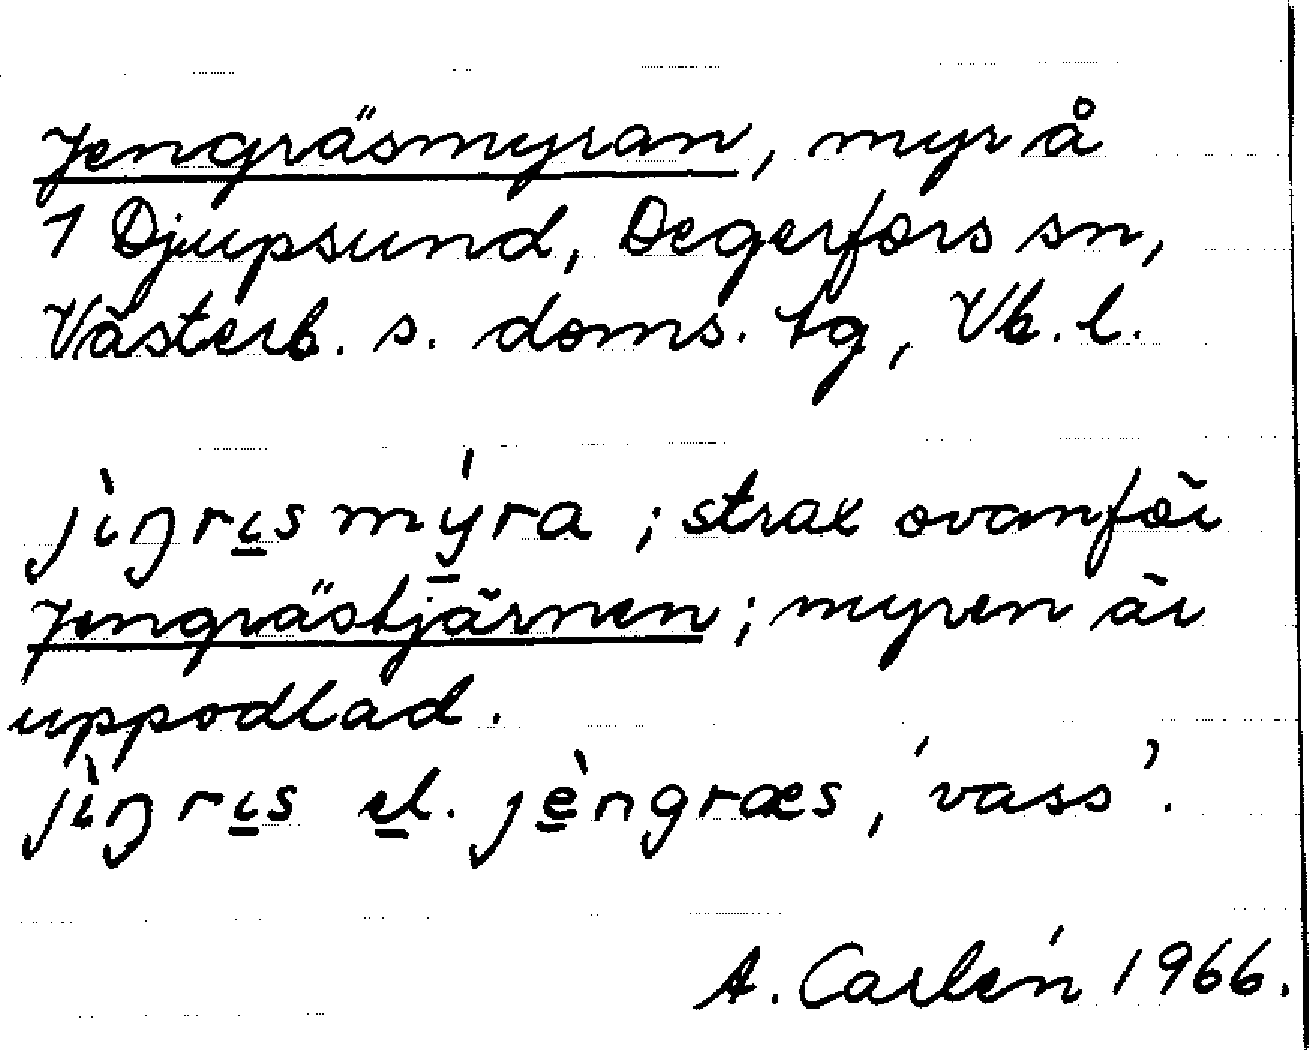 Jengräsmyran, myr å
1 Djupsund, Degerfors sn,
Västerb. s. doms. tg, Vb. l.
jìŋrɩ̱smý̱ra ; strax ovanför
Jengrästjärnen ; myren är
uppodlad.
jìŋrɩ̱s el. jè̱ngræs, 'vass'.
A. Carlén 1966.